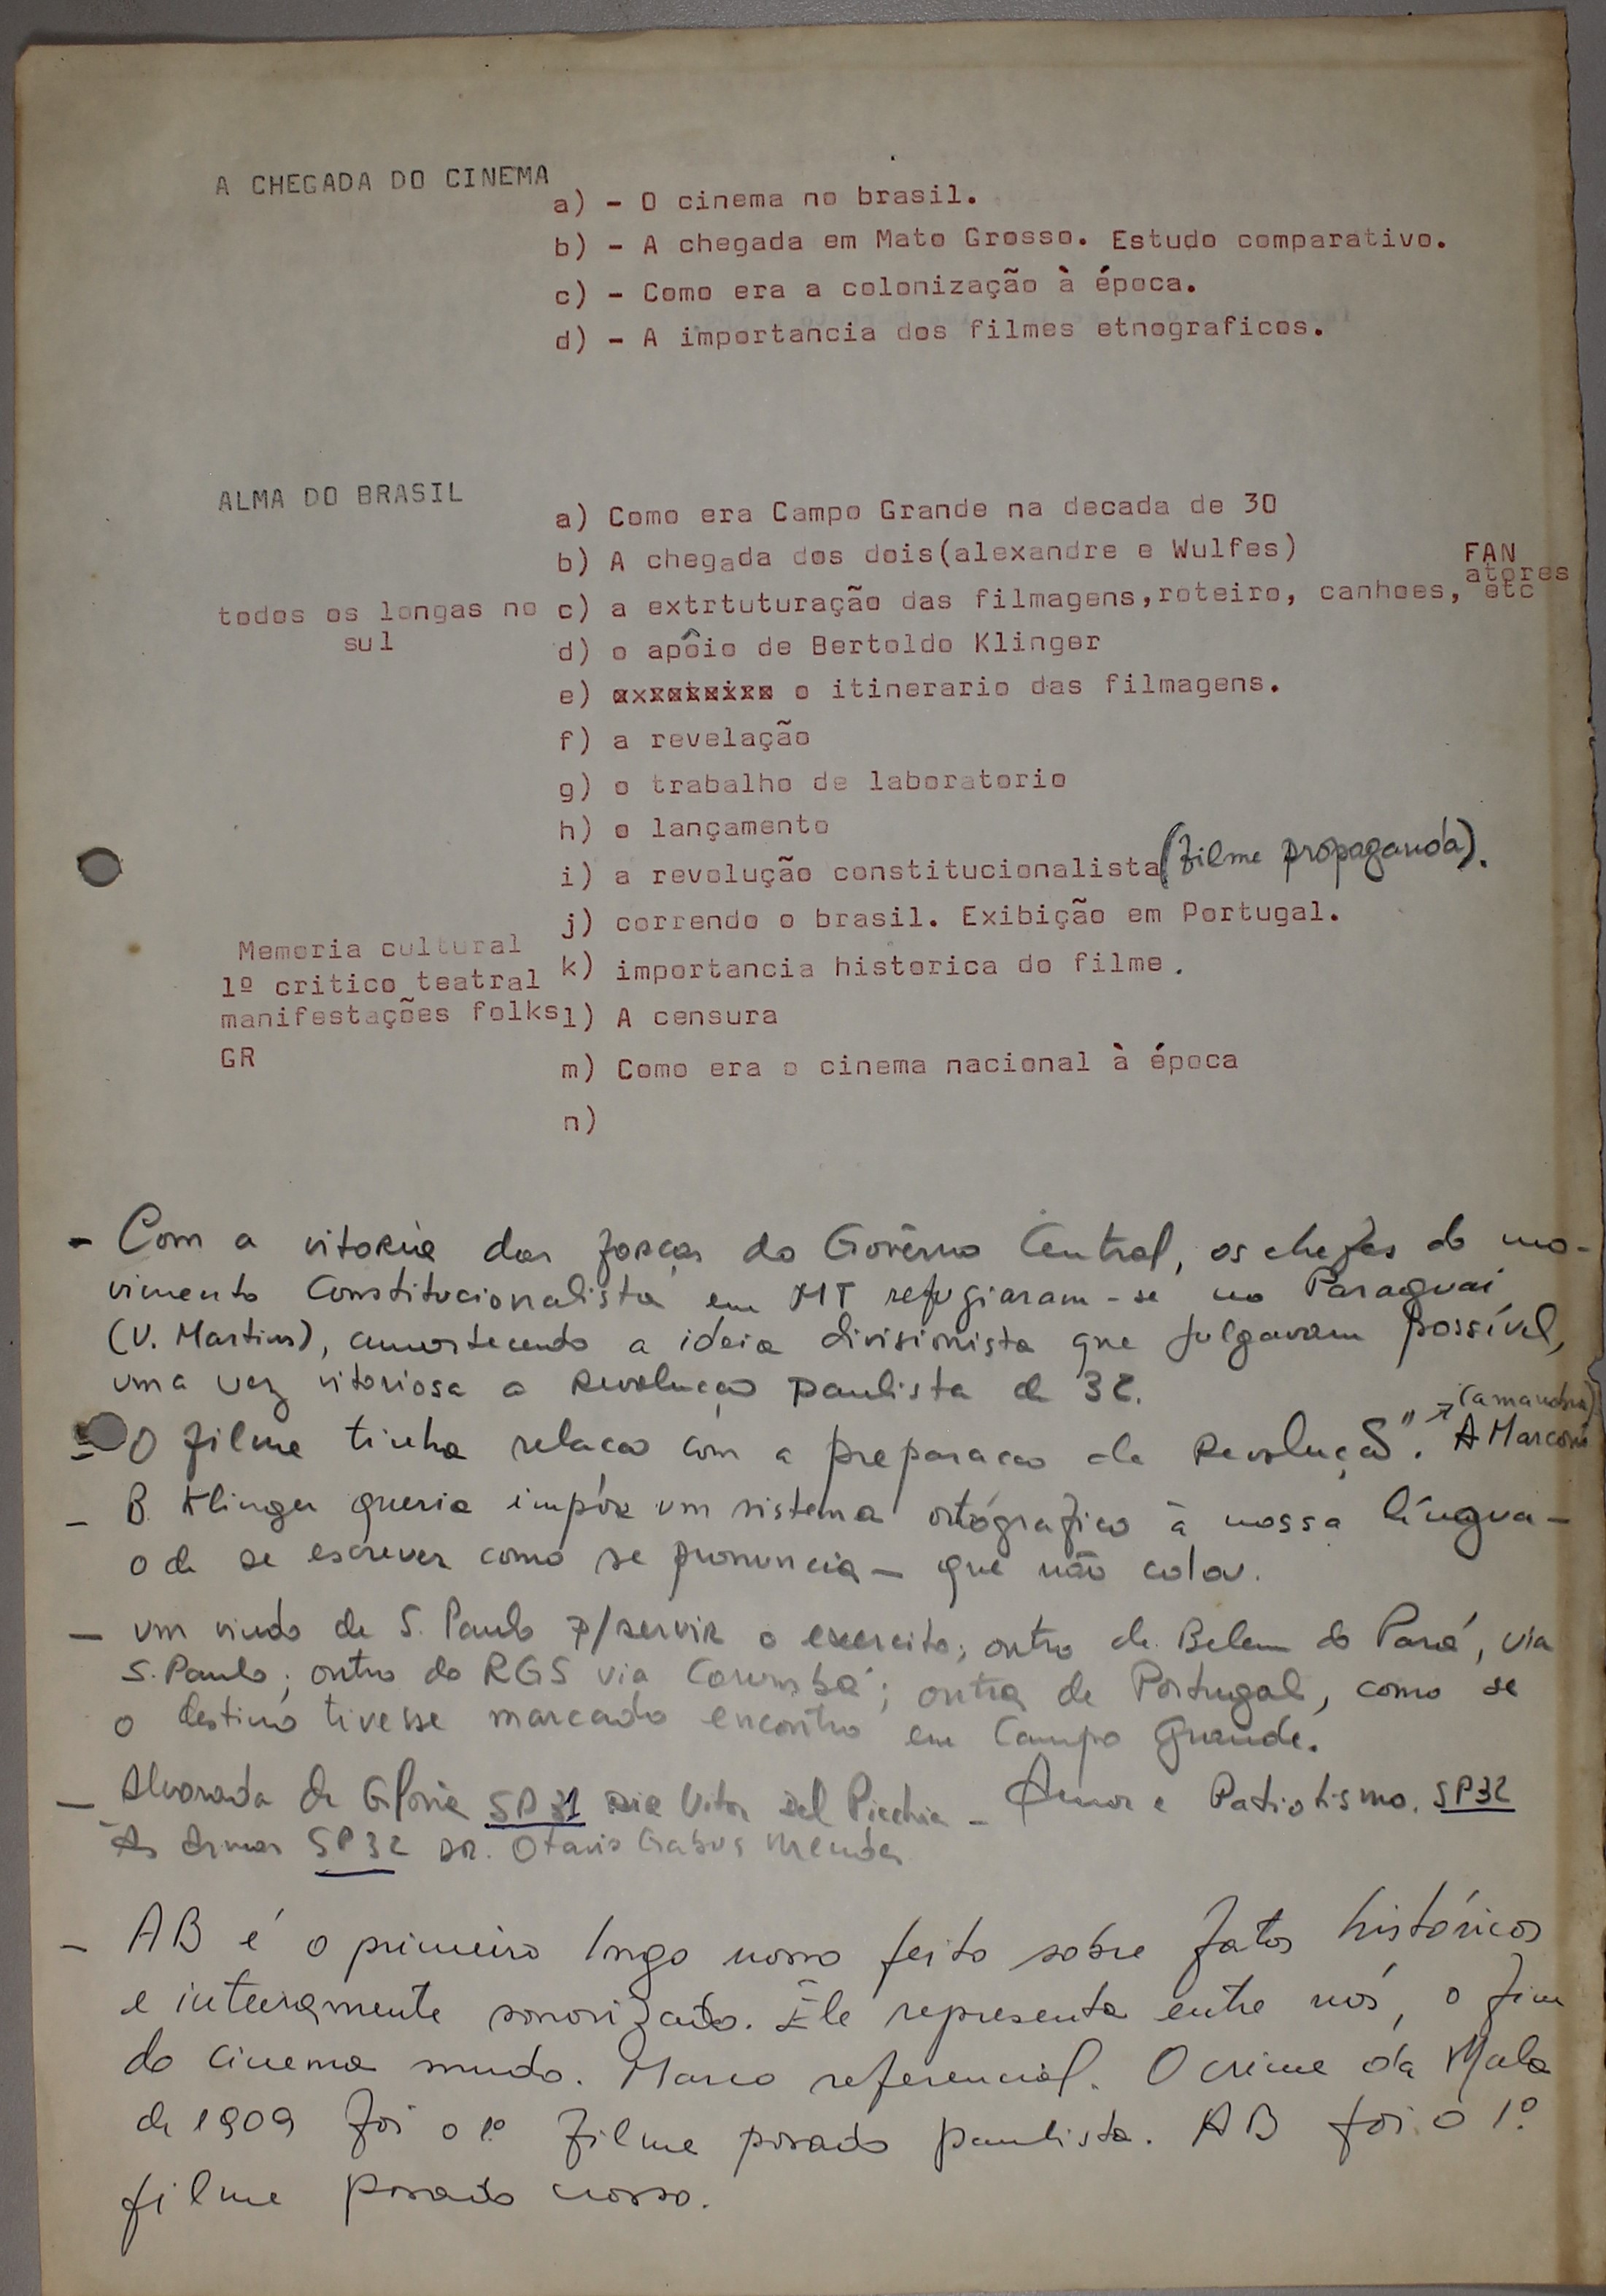 A CHEGADA DO CINEMA
a) - O cinema no brasil.
b) - A chegada em Mato Grosso. Estudo comparativo.
c) - Como era a colonização à época.
d) - A importancia dos filmes etnograficos.
ALMA DO BRASIL
a) Como era Campo Grande na decada de 30
b) A chegada dos dois(alexandre e Wulfes)
FAN
atores
todos os longas no
sul
c) a extrtuturação das filmagens,roteiro, canhoes, etc
d) o apôio de Bertoldo Klinger
e) o itinerario das filmagens.
f) a revelação
g) o trabalho de laboratorio
h) o lançamento
i) a revolução constitucionalista (filme propaganda).
j) correndo o brasil. Exibição em Portugal.
Memoria cultural
1º critico teatral
manifestações folks
GR
k) importancia historica do filme.
l) A censura
m) Como era o cinema nacional à época
n)
- Com a vitoria das forças do Govêrno Central, os chefes do mo-
vimento Constitucionalista em MT refugiaram-se no Paraguai
(V. Martins), amortecendo a ideia divisionista que julgavam possível,
uma vez vitoriosa a Revolucao paulista de 32.
- O filme tinha relacao com a preparacao da Revolução". A Marcon
- B. Klinger queria impôr um sistema ortógrafico à nossa língua -
o de se escrever como se pronuncia - que não colou.
- um vindo de S. Paulo p/servir o exercito; outro de Belem do Pará, via
S. Paulo; outro do RGS via Corumbá; outra de Portugal, como se
o destino tivesse marcado encontro em Campo Grande.
- Alvorada de Gloria SP31 Vitor Del Picchia - Amor e Patriotismo. SP32
Às Armas SP32 DR. Otavio Gabus Mendes
- AB é o primeiro longo nosso feito sobre fatos históricos
e inteiramente sonorizado. Êle representa entre nós, o fim
do cinema mudo. Marco referencial. O crime da Mala
de 1909 foi o 1º filme posado paulista. AB foi o 1º
filme posado nosso.